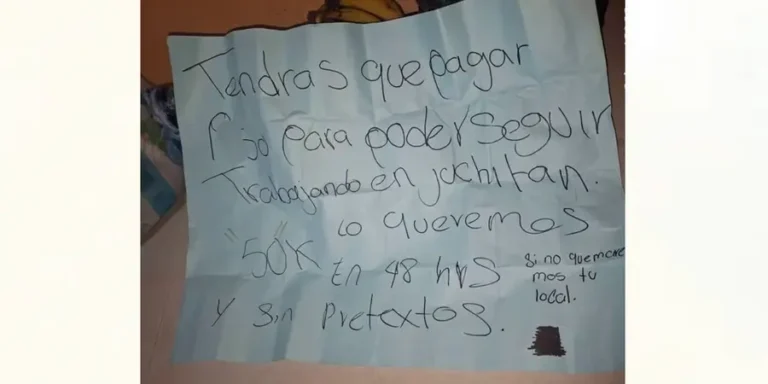 Tendras que pagar
fijo para poder seguir
Trabajando en juchitan.
"50K" lo queremos
En 48 hrs
y sin pretextos.
Si no quemare
mos tu
local.